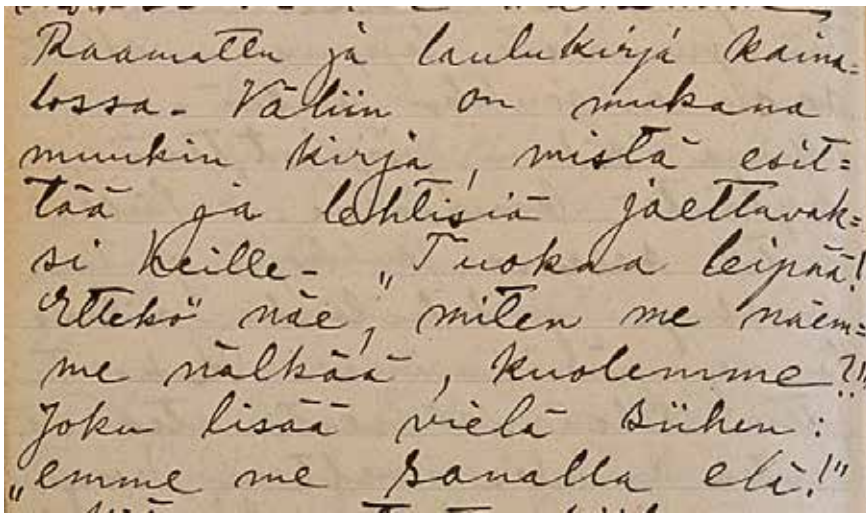 Raamattu ja laulukirja kaina=
lossa. Väliin on mukana
muukin kirja, mistä esit=
tää ja lehtisiä jaettavak=
si heille. „Tuokaa leipää!
Ettekö" näe, miten me näem=
me nälkää, kuolemme?!"
Joku lisää vielä siihen:
„emme me sanalla elä!"